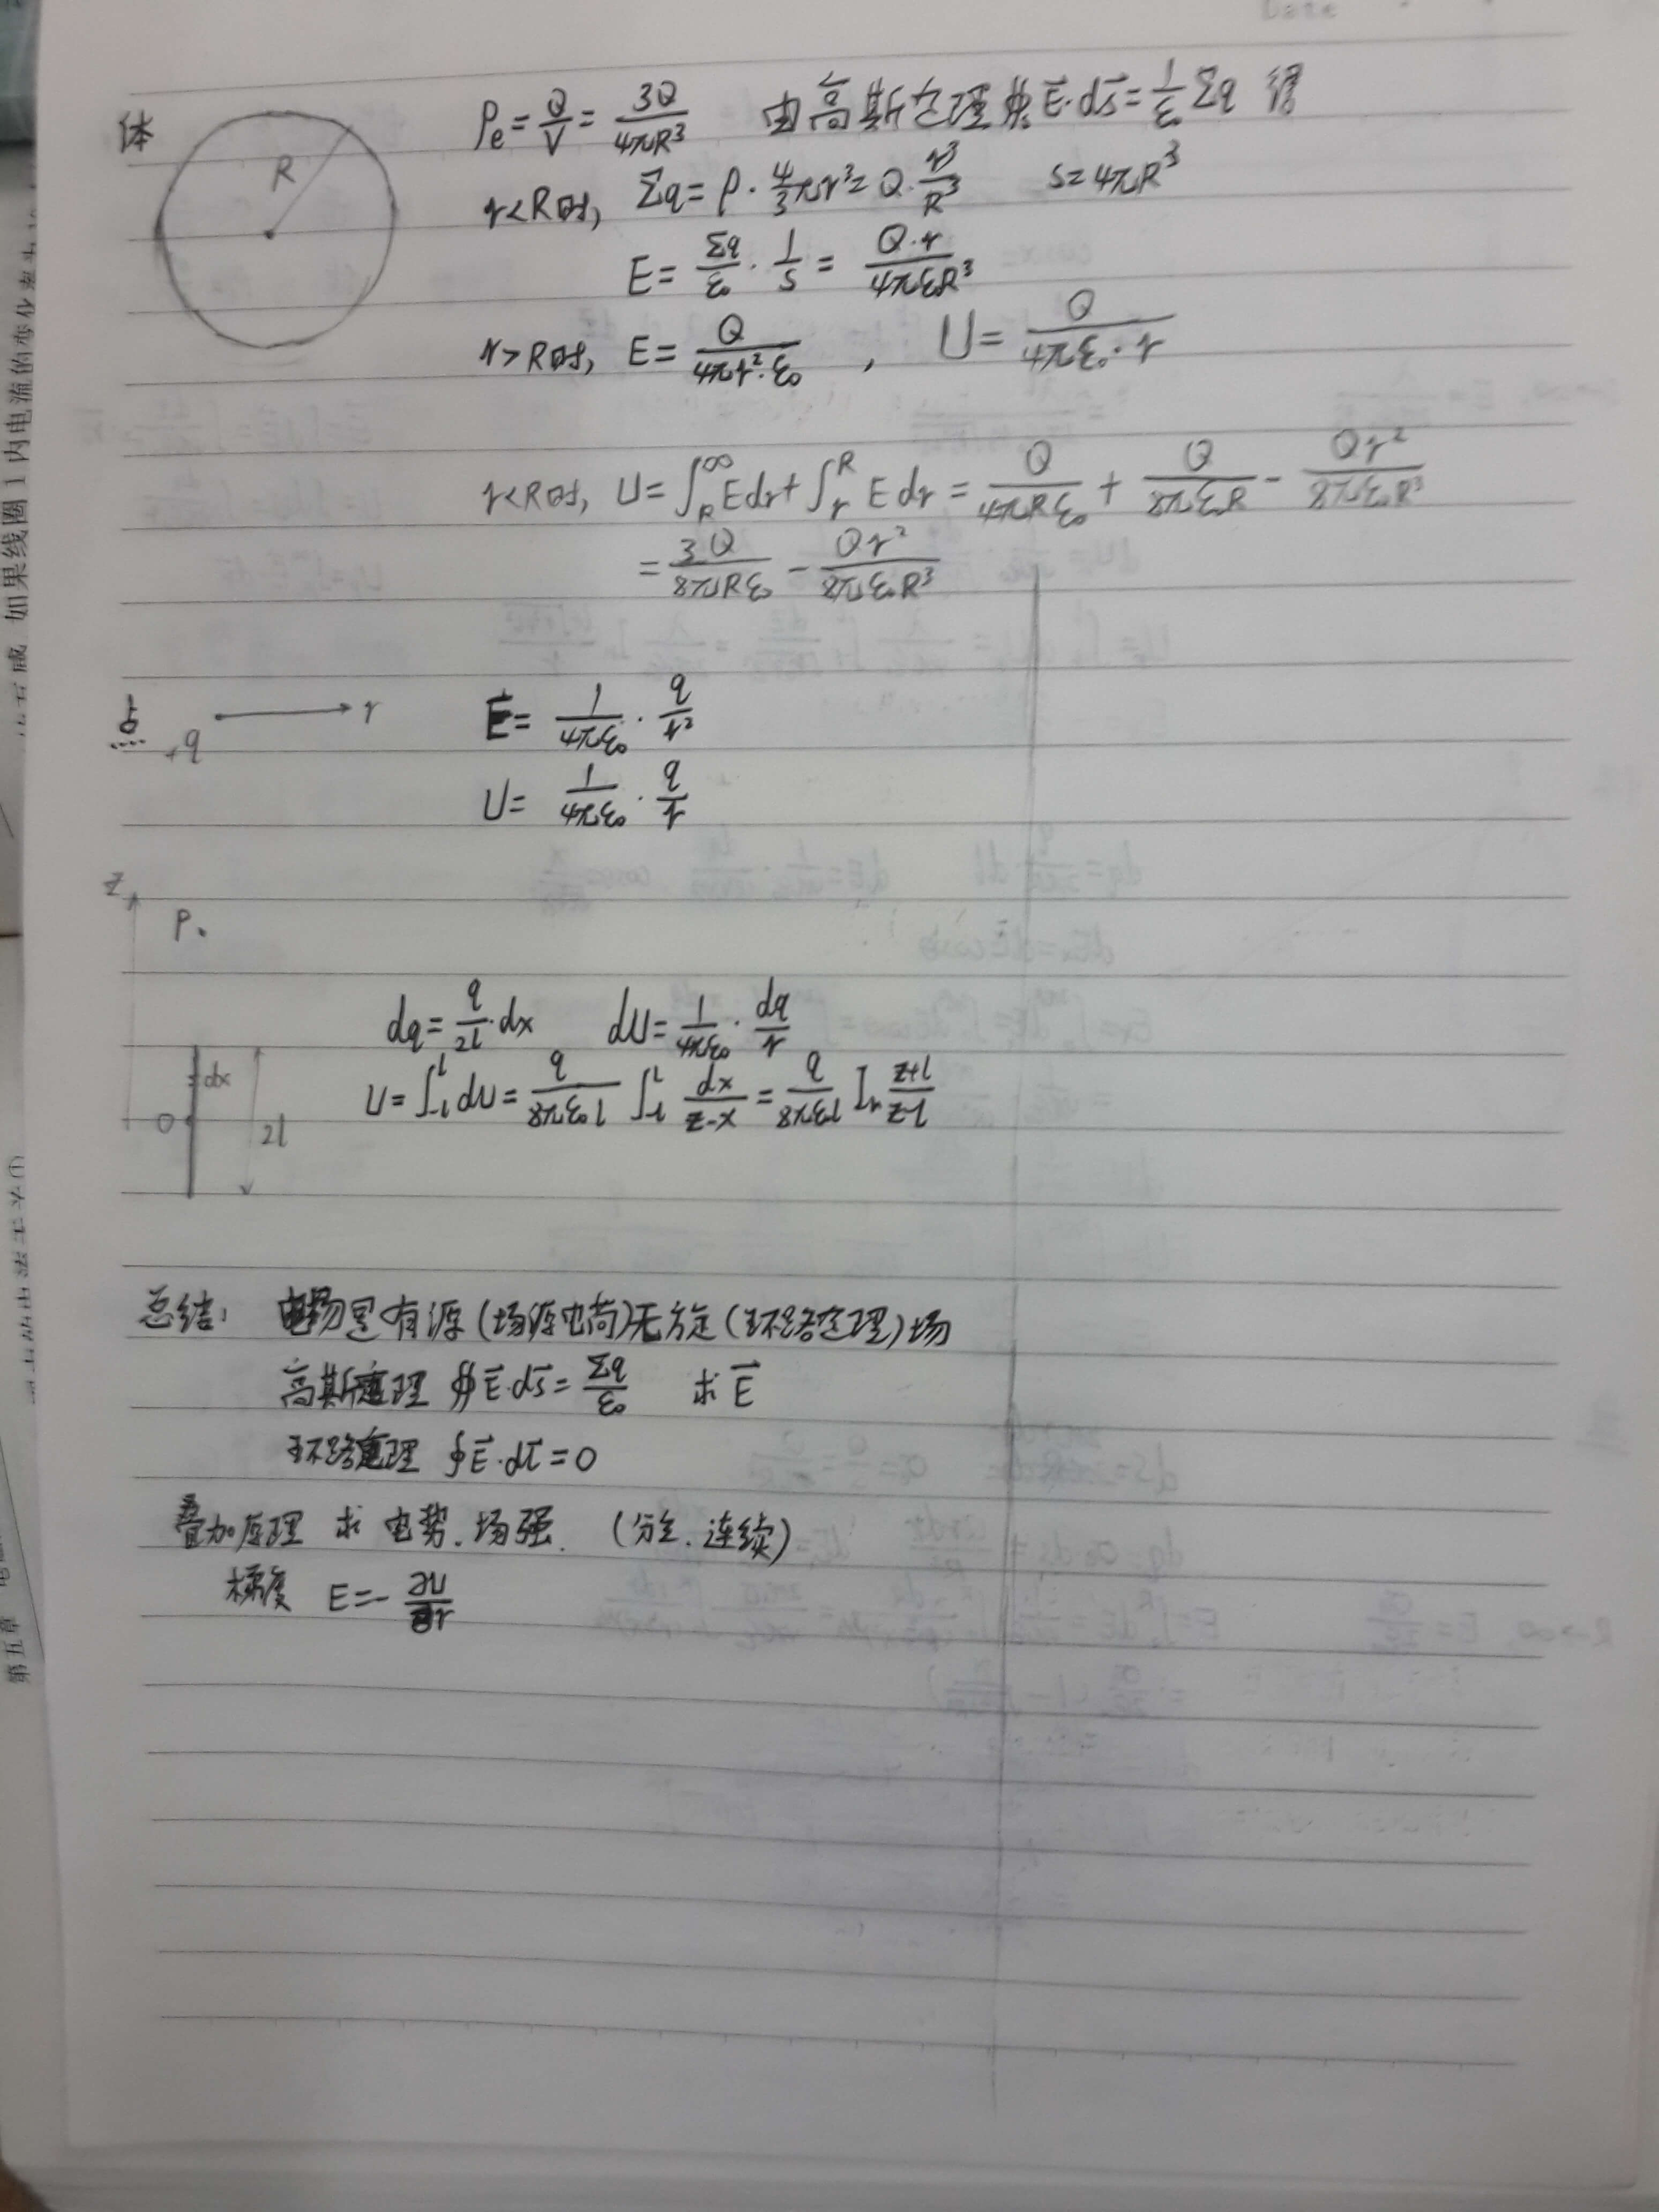 Date
体 R ρe=Q/V=3Q/4πR³ 由高斯定理∯E⃗·dS⃗=1/ε₀ Σq 得
r<R时, Σq=ρ·4/3πr³=Q·r³/R³ S=4πR³
E=Σq/ε₀·1/S=Q·r/4πε₀R³
r>R时, E=Q/4πr²·ε₀ , U=Q/4πε₀·r
r<R时, U=∫_R^∞Edr+∫_r^R Edr=Q/4πRε₀+Q/8πε₀R-Qr²/8πε₀R³
=3Q/8πRε₀-Qr²/8πε₀R³
点 +q r E=1/4πε₀·q/r²
U=1/4πε₀·q/r
z
P.
dq=q/2l·dx dU=1/4πε₀·dq/r
dx
U=∫_-l^l dU=q/8πε₀l ∫_-l^l dx/z-x=q/8πε₀l ln z+l/z-l
O 2l
总结: 电场是有源(场源电荷)无旋(环路定理)场
高斯定理 ∯E⃗·dS⃗=Σq/ε₀ 求E⃗
环路定理 ∮E⃗·dl⃗=0
叠加原理 求 电势.场强. (分立.连续)
梯度 E=-∂U/∂r
如果线圈1内电流的变化
第五章